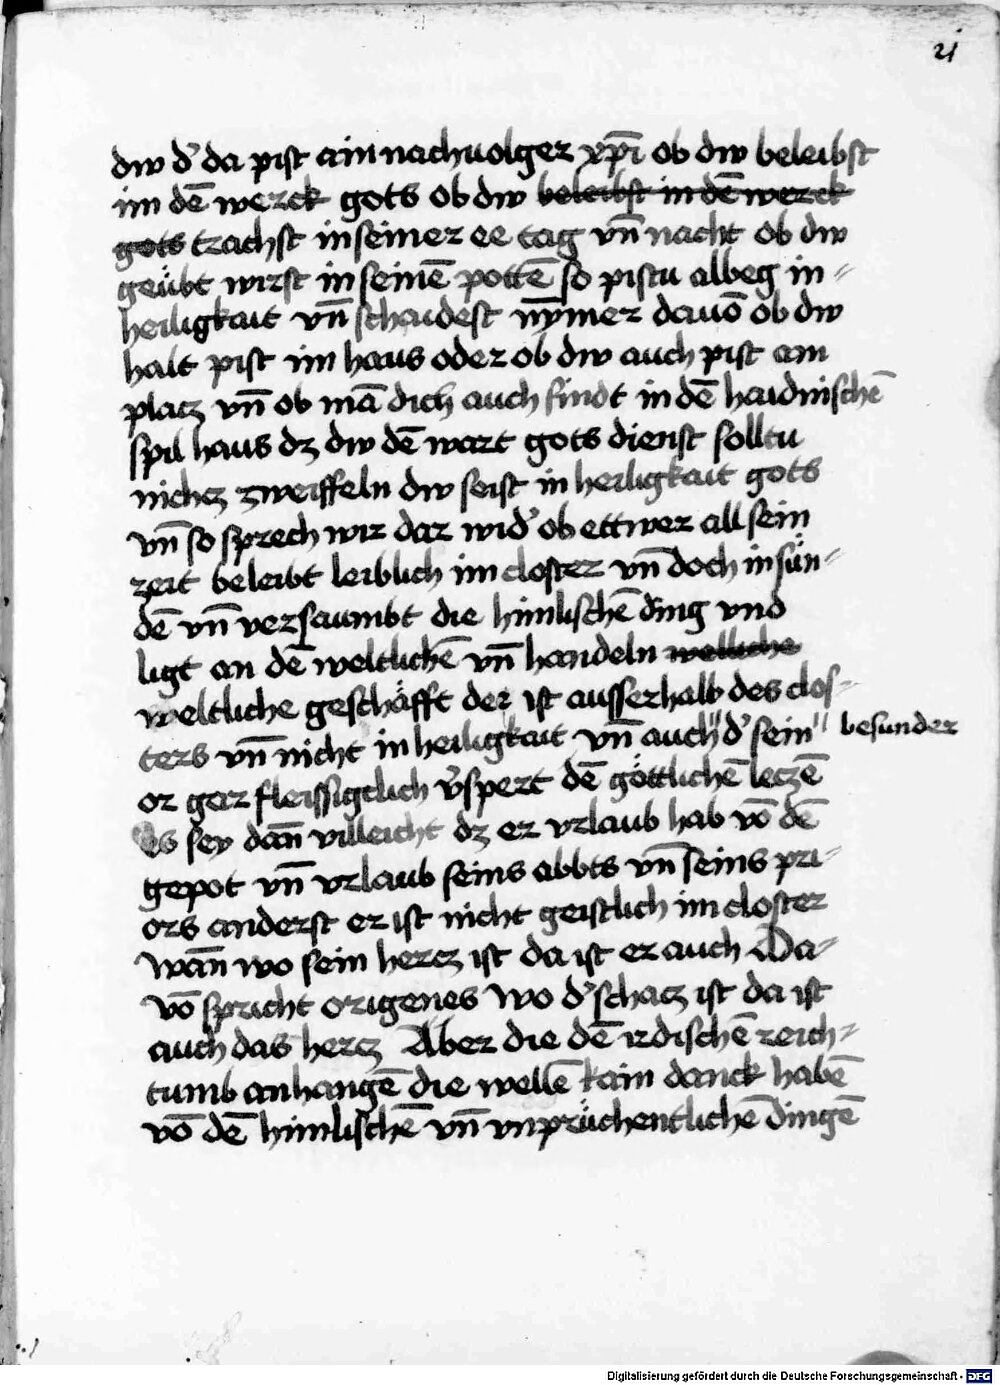 21
dw d' da pist ain nachuolger xp̄i ob dw beleibst
im dē werck gots ob dw beleibst in dē werck
gots trachst in seiner ee tag vn̄ nacht ob dw
geübt wirst in seinē pottē so pistu albeg in=
heiligkait vn̄ schaidest nȳmer dauō ob dw
halt pist im haus oder ob dw auch pist am
placz vn̄ ob mā dich auch findt in dē haidnischē
spil haus dz dw dē wart gots dienst solltu
nichcz zweiffeln dw seist in heiligkait gots
vn̄ so sprech wir dar wid' ob ettwer all sein
zeit beleibt leiblich im closter vn̄ doch in sün=
dē vn̄ versaumbt die himlischē ding vnd
ligt an dē weltlichē vn̄ handeln welliche
weltliche geschäfft der ist ausserhalb des clos=
ters vn̄ nicht in heiligkait vn̄ auch " d' sein " besunder
or gar fleissigclich v̓spert dē göttlichē leczē
Es sey dan̄ villeicht dz er vrlaub hab vō dē
gepot vn̄ vrlaub seins abbts vn̄ seins pri=
ors anderst er ist nicht geistlich im closter
wan̄ wo sein hercz ist da ist er auch Da=
vō spricht origenes wo d' schacz ist da ist
auch das hercz Aber die dē irdischē reich=
tumb anhangē die wellē kain danck habē
vō dē himlischē vn̄ vnprüchentlichē dingē
Digitalisierung gefördert durch die Deutsche Forschungsgemeinschaft - DFG